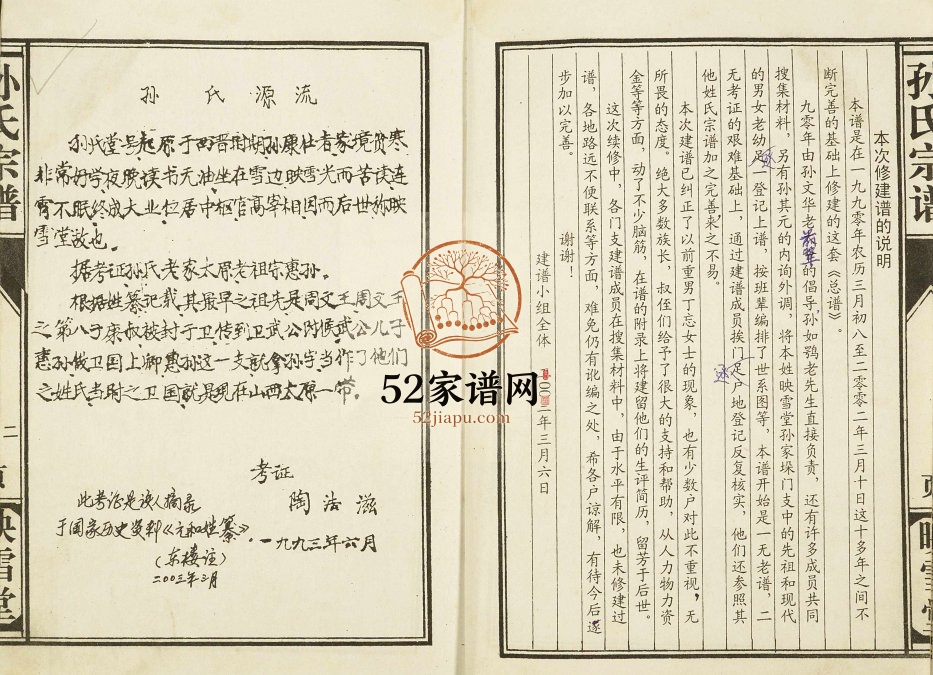 孙氏源流
孙氏堂号起原于西晋国期孙康仕者家境贫寒
非常好学夜晚读书无油坐在雪边映雪光而苦读连
霄不眠终成大业位居中枢官高宰相因而后世称映
雪堂故也。
据考证孙氏老家太原老祖宗惠孙。
根据姓纂记载其最早之祖先是周文王周文王
之第八子康叔被封于卫传到卫武公阶候武公儿子
惠孙做卫国上卿惠孙这一支就拿孙字当作了他们
之姓氏当时之卫国就是现在山西太原一带。
考证
陶法滋
一九九三年六月
此考证是该人摘录
于国家历史资料《元和姓纂》
(东楼注)
二00三年三月
孙氏宗谱
二
页
映雪堂
本次修建谱的说明
本谱是在一九九零年农历三月初八至二零零二年三月十日这十多年之间不
断完善的基础上修建的这套《总谱》。
九零年由孙文华老前辈的倡导,孙如鹗老先生直接负责,还有许多成员共同
搜集材料,另有孙其元的内询外调,将本姓映雪堂孙家垛门支中的先祖和现代
的男女老幼逐一登记上谱,按班辈编排了世系图等,本谱开始是一无老谱,二
无考证的艰难基础上,通过建谱成员挨门逐户地登记反复核实,他们还参照其
他姓氏宗谱加之完善,来之不易。
本次建谱已纠正了以前重男丁忘女士的现象,也有少数户对此不重视,无
所畏的态度。绝大多数族长,叔侄们给予了很大的支持和帮助,从人力物力资
金等等方面,动了不少脑筋,在谱的附录上将建留他们的生评简历,留芳于后世。
这次续修中,各门支建谱成员在搜集材料中,由于水平有限,也未修建过
谱,各地路远不便联系等方面,难免仍有讹编之处,希各户谅解,有待今后逐
步加以完善。
谢谢!
建谱小组全体
二00二年三月六日
孙氏宗谱
页
映雪堂
52家谱网
52jiapu.com